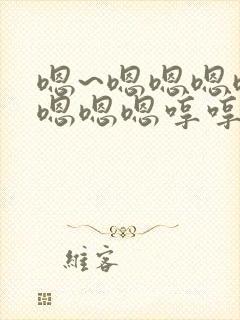 嗯~嗯嗯嗯
嗯嗯嗯哼哼
維客